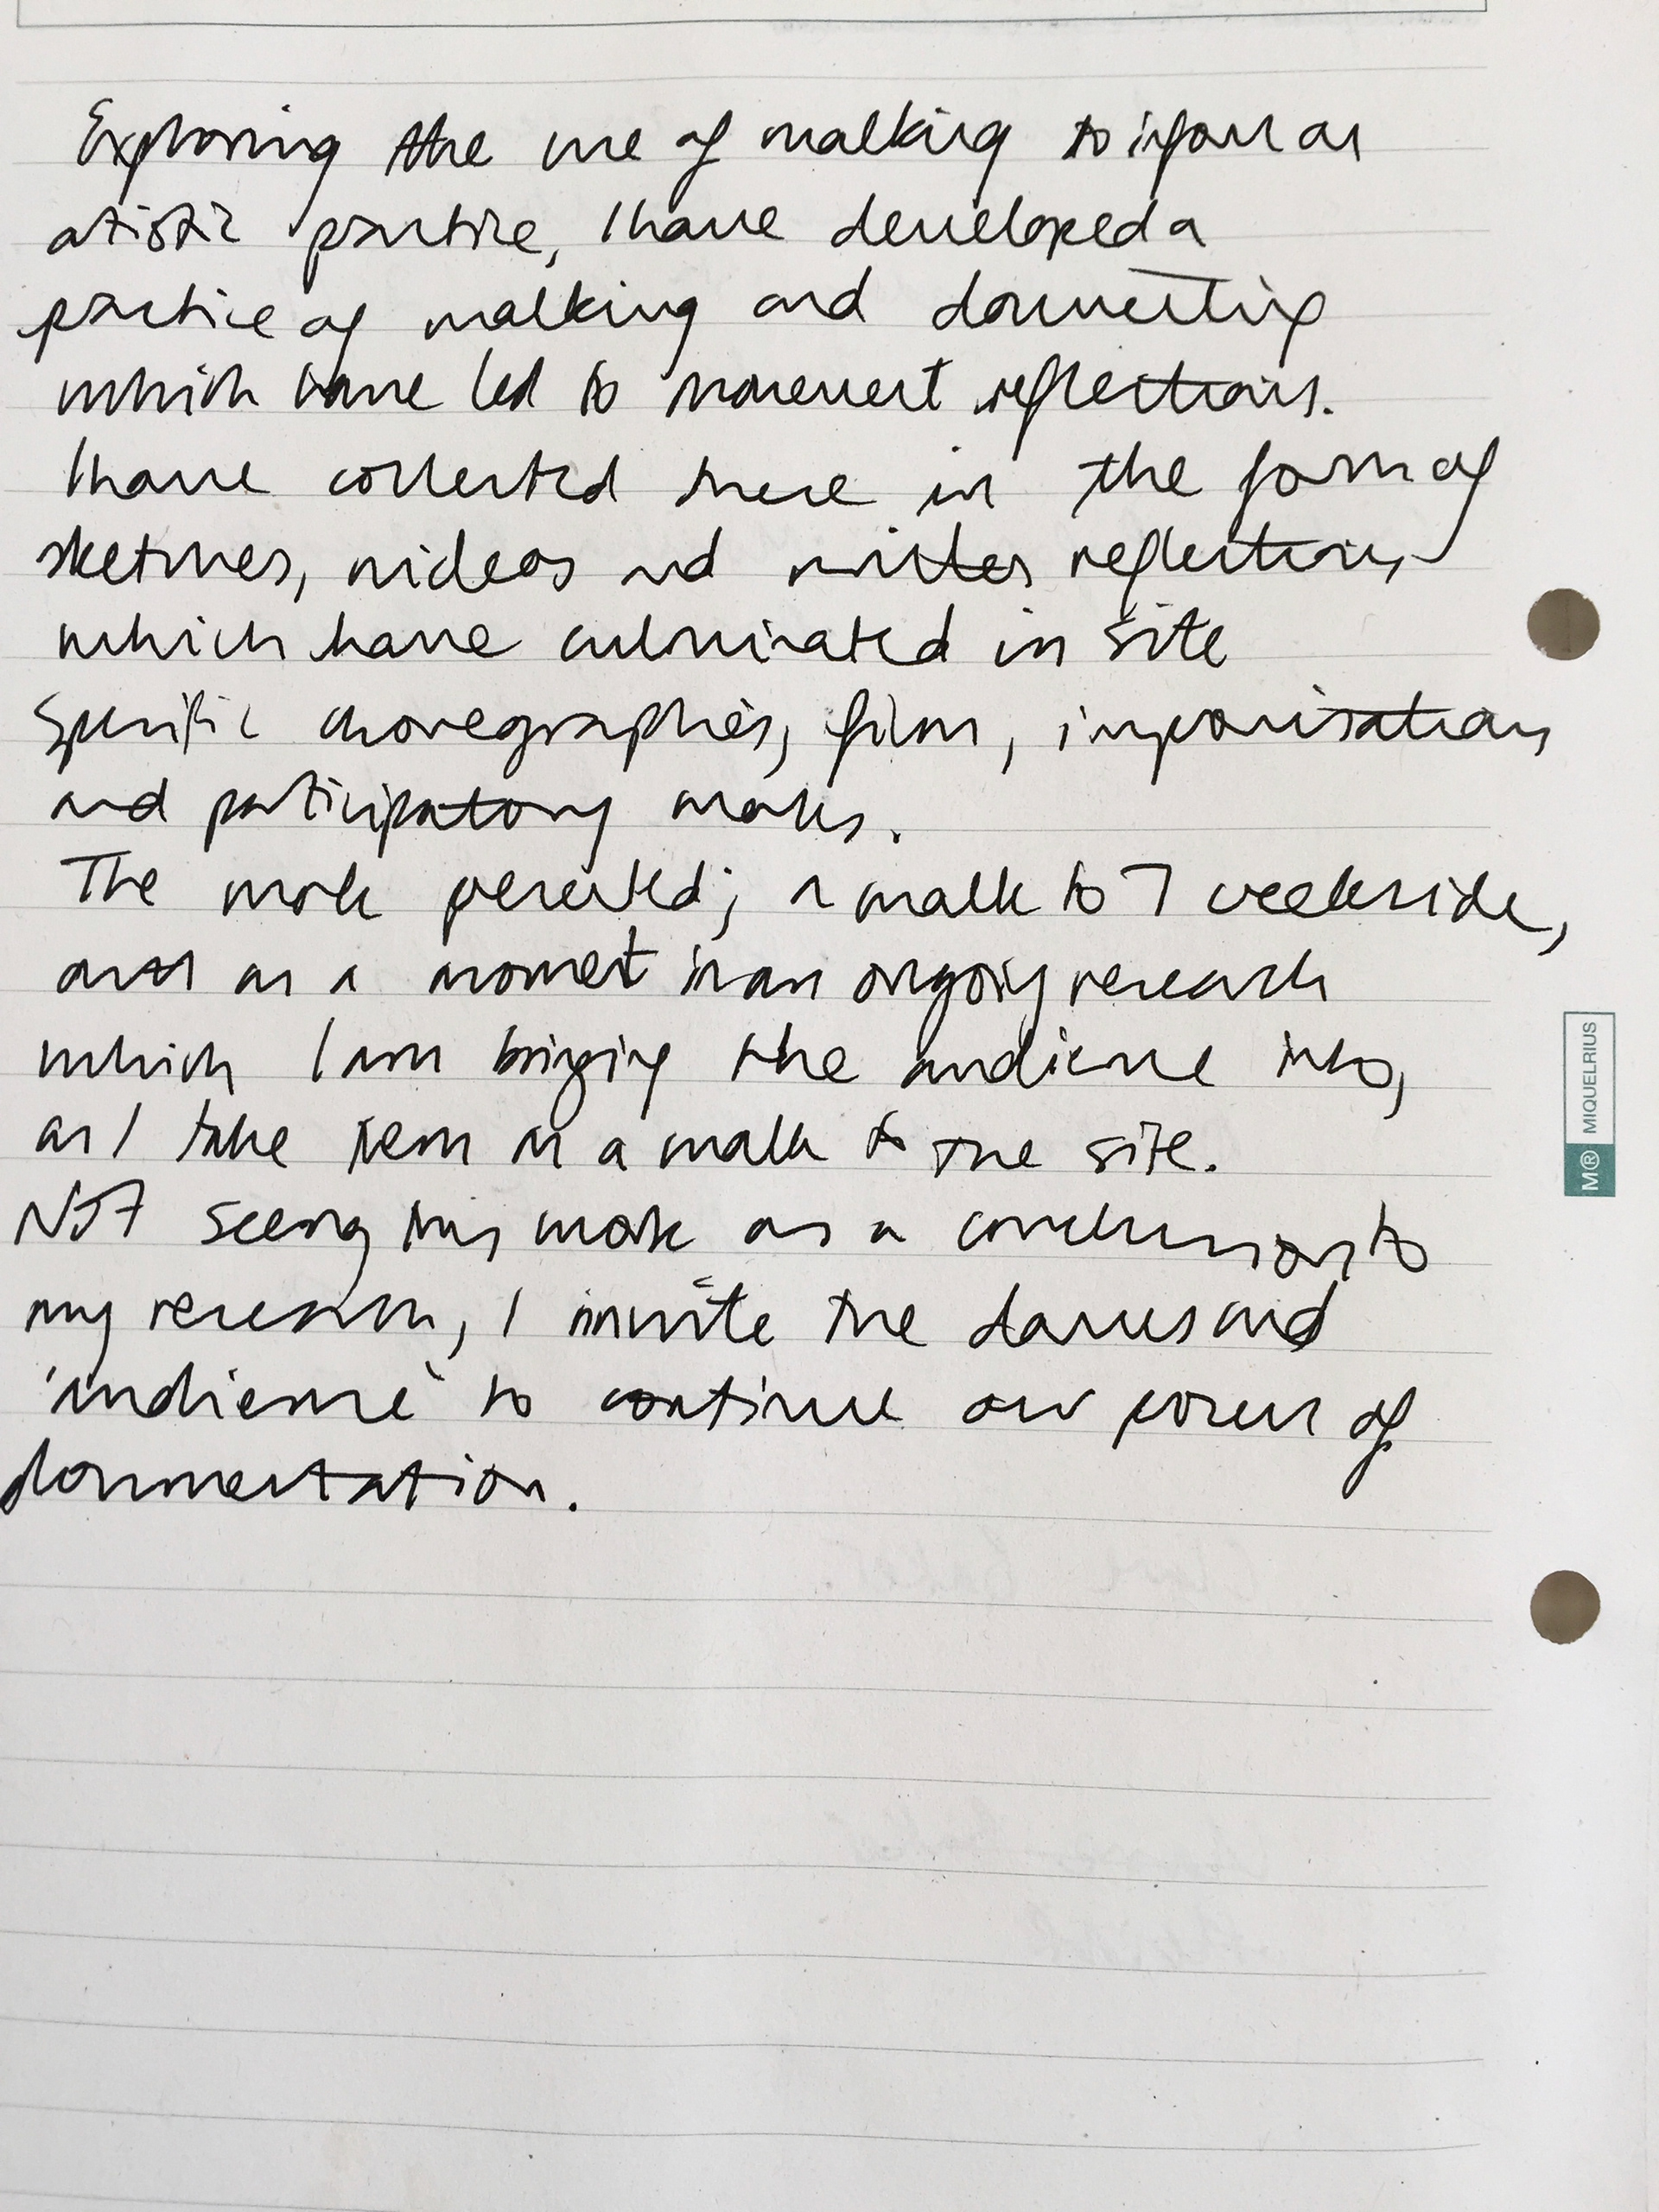 Exploring the use of walking to inform an
artistic practice, I have developed a
practice of walking and documenting
which have led to movement reflections.
I have collected these in the form of
sketches, videos and written reflections,
which have culminated in site
specific choreographies, film, improvisation,
and participatory works.
The work presented; a walk to 7 creekside,
acts as a moment in an ongoing research
which I am bringing the audience into,
as I take them on a walk to the site.
Not seeing this work as a conclusion to
my research, I invite the dancers and
'audience' to continue our process of
documentation.
M® MIQUELRIUS